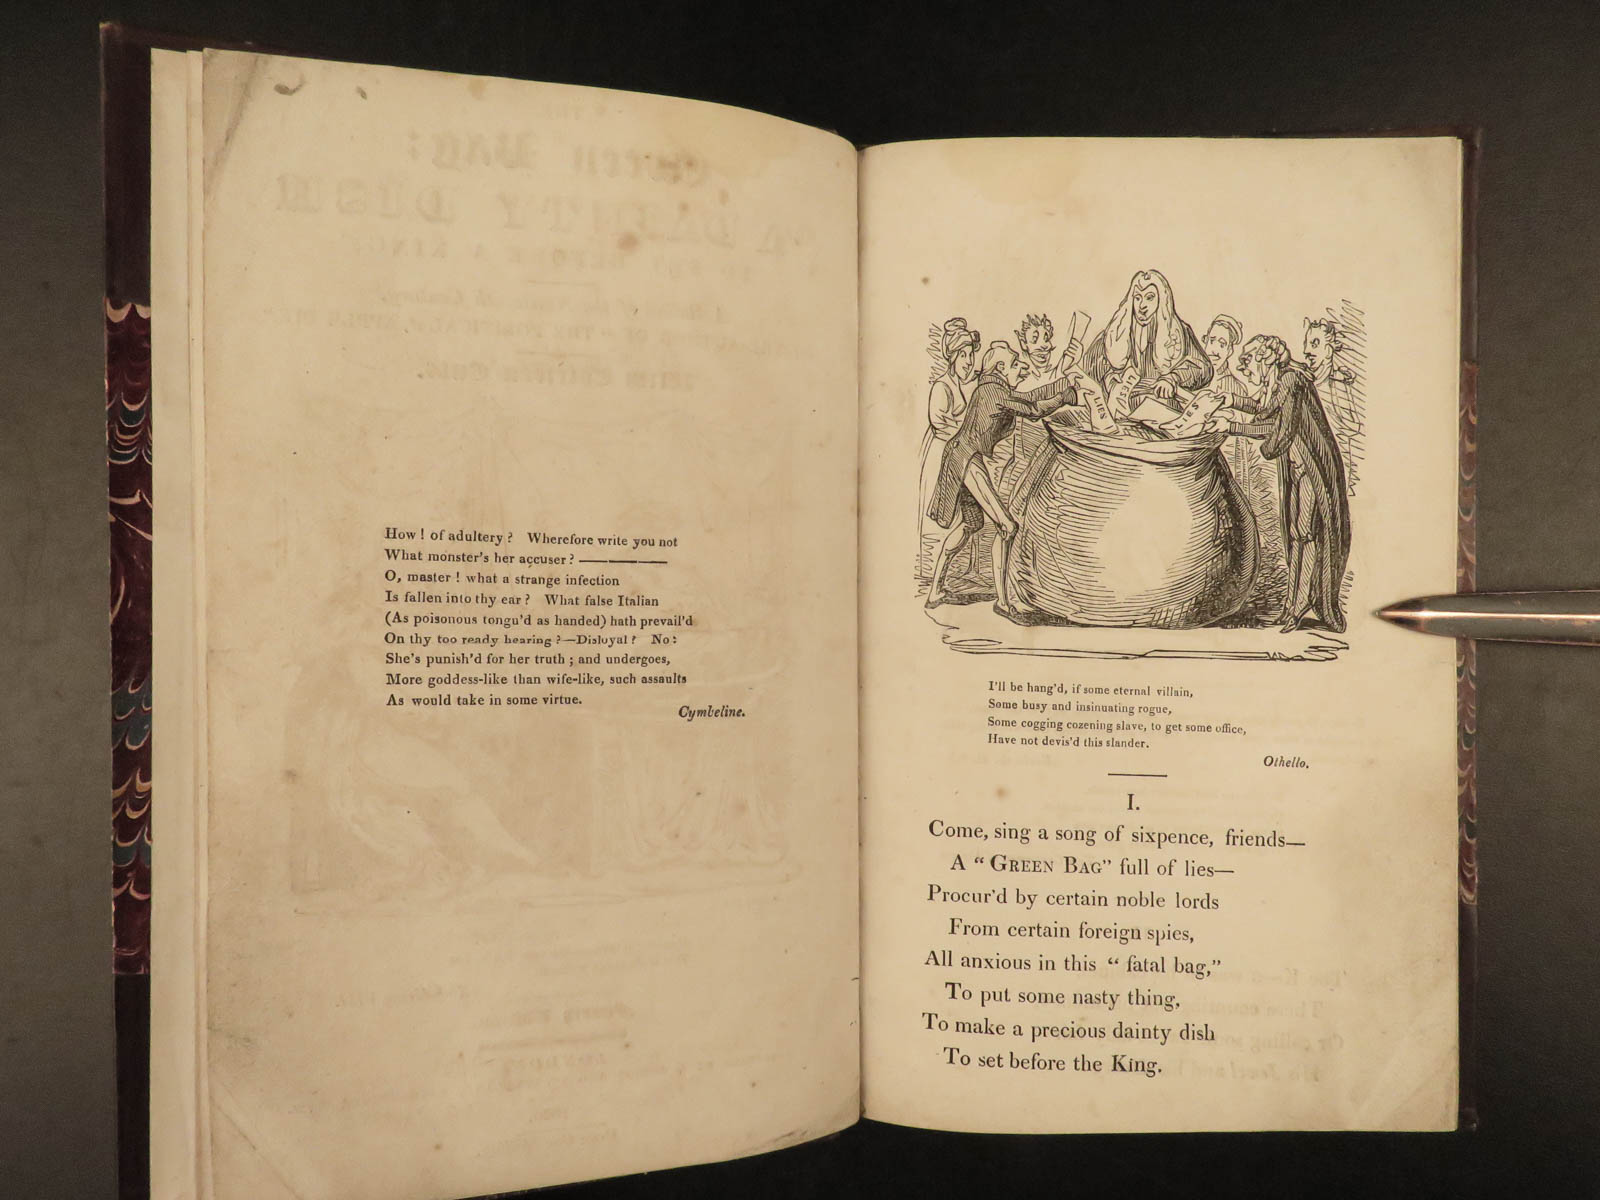 How ! of adultery ? Wherefore write you not
What monster's her accuser ? ————
O, master ! what a strange infection
Is fallen into thy ear ? What false Italian
(As poisonous tongu'd as handed) hath prevail'd
On thy too ready hearing ?—Disloyal ? No :
She's punish'd for her truth ; and undergoes,
More goddess-like than wife-like, such assaults
As would take in some virtue.
Cymbeline.
LIES
LIES
LIES
I'll be hang'd, if some eternal villain,
Some busy and insinuating rogue,
Some cogging cozening slave, to get some office,
Have not devis'd this slander.
Othello.
I.
Come, sing a song of sixpence, friends—
A “ GREEN BAG” full of lies—
Procur'd by certain noble lords
From certain foreign spies,
All anxious in this “ fatal bag,”
To put some nasty thing,
To make a precious dainty dish
To set before the King.